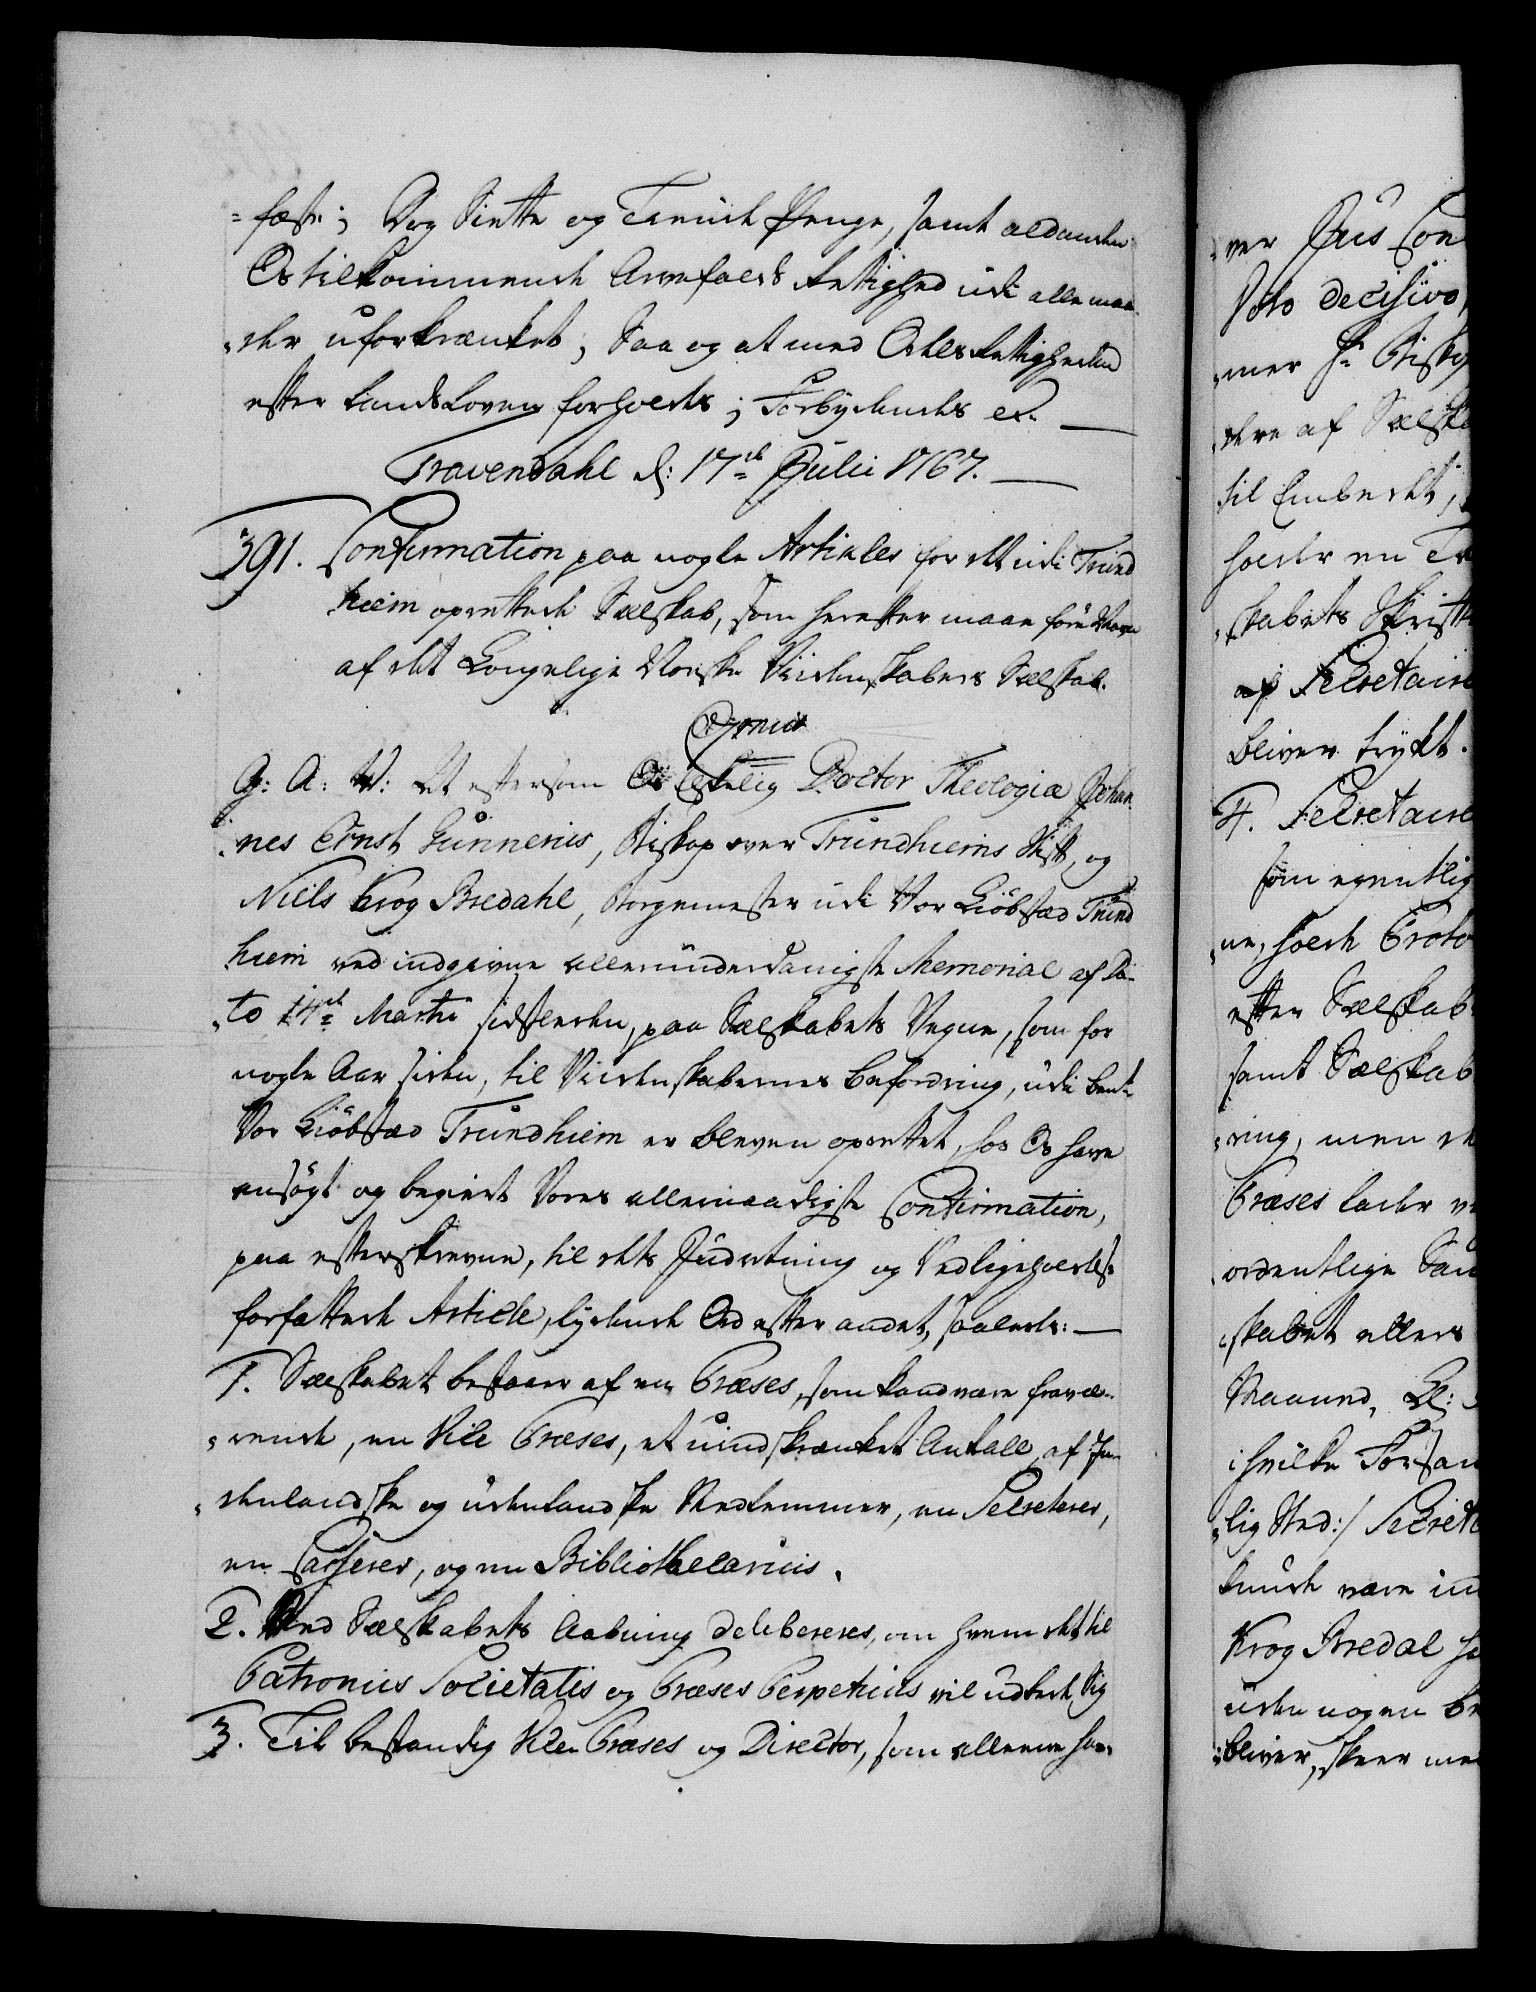 =fæste; Dog Siette og Tiende Penge, samt al danden
Os tilkommende Arvefalds Rettighed udi alle maa-
der uforkrænket; Saa og at med Odels Rettigheden
efter Landsloven forholdes; Forbydendes etc.
Travendahl d: 17de Julii 1767.
391. Confirmation paa nogle Articler for det udi Trund
hiem oprettede Selskab, som herefter maae føre Navn
af det Kongelige Norske Videnskabers Selskab.
G: A: V: At eftersom Os Elskelig Doctor Theologiæ Johan
nes Ernst Gunnerus, Biskop over Trundhiems Stift, og
Niels Krog Bredahl, Borgemester udi Vor Kiøbstæd Trund
hiem ved indgivne allerunderdanigste Memorial af Da-
to 14de Martii sidstleden, paa Selskabets Vegne, som for
nogle Aar siden, til Videnskabernes Befordring, udi bemte
Vor Kiøbstæd Trundhiem er bleven oprettet, hos Os have
ansøgt og begiert Vores allernaadigste Confirmation,
paa efterskrevne, til dets Indretning og Vedligeholdelse
forfattede Article, lydende Ord efter andet, saaledes:
1. Selskabet bestaaer af en Præses, som kand være fravæ-
rende, en Vice Præses, et uindskrænket Antall af In-
denlandske og udenlandske Medlemmer, en Secreterer,
en Casserer, og en Bibliothecarius.
2. Ved Selskabets Aabning delibereres, om hvem det til
Patronus Societatis og Præses Perpetuus vil udbede Sig
3. Til bestandig Vice Præses og Director, som allene ha-
ver Jus Con
Voto decisivo,
mer Hr Bisko
dere af Selska
til Embedet,
holder en
skabets Skrift
af Secretaire
bliver trykt.
4. Secretaire
som egentlig
ne, holde Proto
efter Selskab
samt Selskab
ring, men
Præses lader
ordentlige
skabet ellers
Maaned,
i hvilke Forsam
lig Sted:/ Secrete
kunde være
Krog Bredal
uden nogen
bliver, skeer me